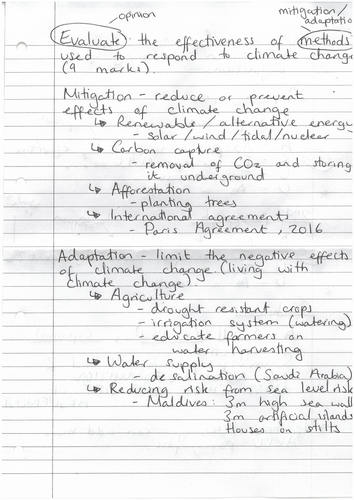 opinion
mitigation/
adaptatio
Evaluate the effectiveness of methods
used to respond to climate change
(9 marks).
Mitigation - reduce or prevent
effects of climate change
↳ Renewable/alternative energy
- solar/wind/tidal/nuclear
↳ Carbon capture
- removal of CO2 and storing
it underground
↳ Afforestation
- planting trees
↳ International agreements
- Paris Agreement, 2016
Adaptation - limit the negative effects
of climate change. (living with
climate change)
↳ Agriculture
- drought resistant crops
- irrigation system (watering)
- educate farmers on
water harvesting
↳ Water supply
- desalination (Saudi Arabia)
↳ Reducing risk from sea level rise
- Maldives: 3m high sea wall
3m artificial islands
Houses on stilts